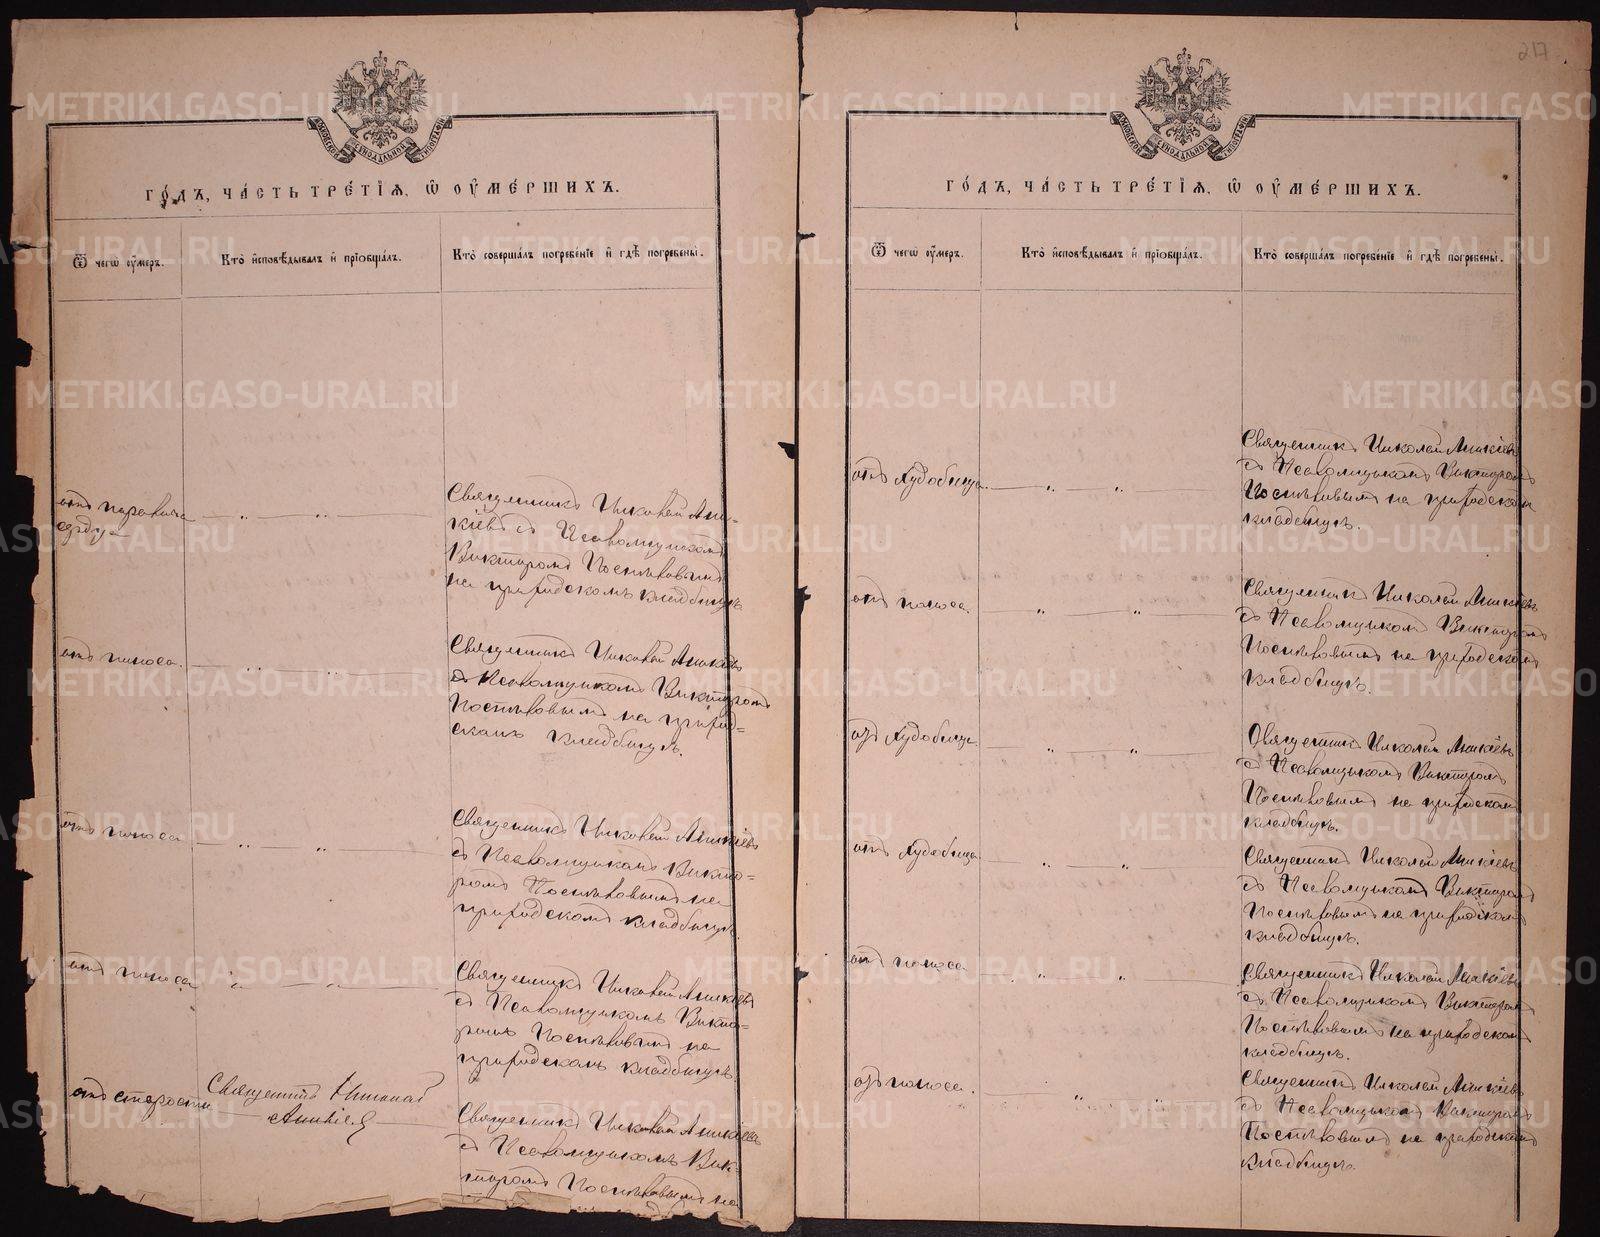 217
МОСКОВСКОЙ СѴНОДАЛЬНОЙ ТИПОГРАФІИ
ГО́ДЪ, ЧА́СТЬ ТРЕ́ТІѦ, Ѡ ОУ҆МЕ́РШИХЪ.
Ѿ чегѡ̀ оу҆́меръ.
Кто̀ и҆сповѣ́дывалъ и҆ прїѡбща́лъ.
Кто̀ соверша́лъ погребе́нїе и҆ гдѣ̀ погребены̀.
отъ паралича
сердца
Священникъ Николай Ани-
кіевъ съ Псаломщикомъ
Викторомъ Постниковымъ
на приходскомъ кладбищѣ
отъ поноса.
Священникъ Николай Аникіевъ
съ Псаломщикомъ Викторомъ
Постниковымъ на приход-
скомъ кладбищѣ.
отъ поноса
Священникъ Николай Аникіевъ
съ Псаломщикомъ Викто-
ромъ Постниковымъ на
приходскомъ кладбищѣ.
отъ поноса
Священникъ Николай Аникіевъ
съ Псаломщикомъ Викто-
ромъ Постниковымъ на
приходскомъ кладбищѣ.
отъ старости
Священникъ Николай
Аникіевъ
Священникъ Николай Аникіевъ
съ Псаломщикомъ Вик-
торомъ Постниковымъ на
МОСКОВСКОЙ СѴНОДАЛЬНОЙ ТИПОГРАФІИ
ГО́ДЪ, ЧА́СТЬ ТРЕ́ТІѦ, Ѡ ОУ҆МЕ́РШИХЪ.
Ѿ чегѡ̀ оу҆́меръ.
Кто̀ и҆сповѣ́дывалъ и҆ прїѡбща́лъ.
Кто̀ соверша́лъ погребе́нїе и҆ гдѣ̀ погребены̀.
отъ худобища
Священникъ Николай Аникіевъ
съ Псаломщикомъ Викторомъ
Постниковымъ на приходскомъ
кладбищѣ.
отъ поноса
Священникъ Николай Аникіевъ
съ Псаломщикомъ Викторомъ
Постниковымъ на приходскомъ
кладбищѣ.
отъ худобища
Священникъ Николай Аникіевъ
съ Псаломщикомъ Викторомъ
Постниковымъ на приходскомъ
кладбищѣ.
отъ худобища
Священникъ Николай Аникіевъ
съ Псаломщикомъ Викторомъ
Постниковымъ на приходскомъ
кладбищѣ.
отъ поноса
Священникъ Николай Аникіевъ
съ Псаломщикомъ Викторомъ
Постниковымъ на приходскомъ
кладбищѣ.
отъ поноса.
Священникъ Николай Аникіевъ
съ Псаломщикомъ Викторомъ
Постниковымъ на приходскомъ
кладбищѣ.
METRIKI.GASO-URAL.RU